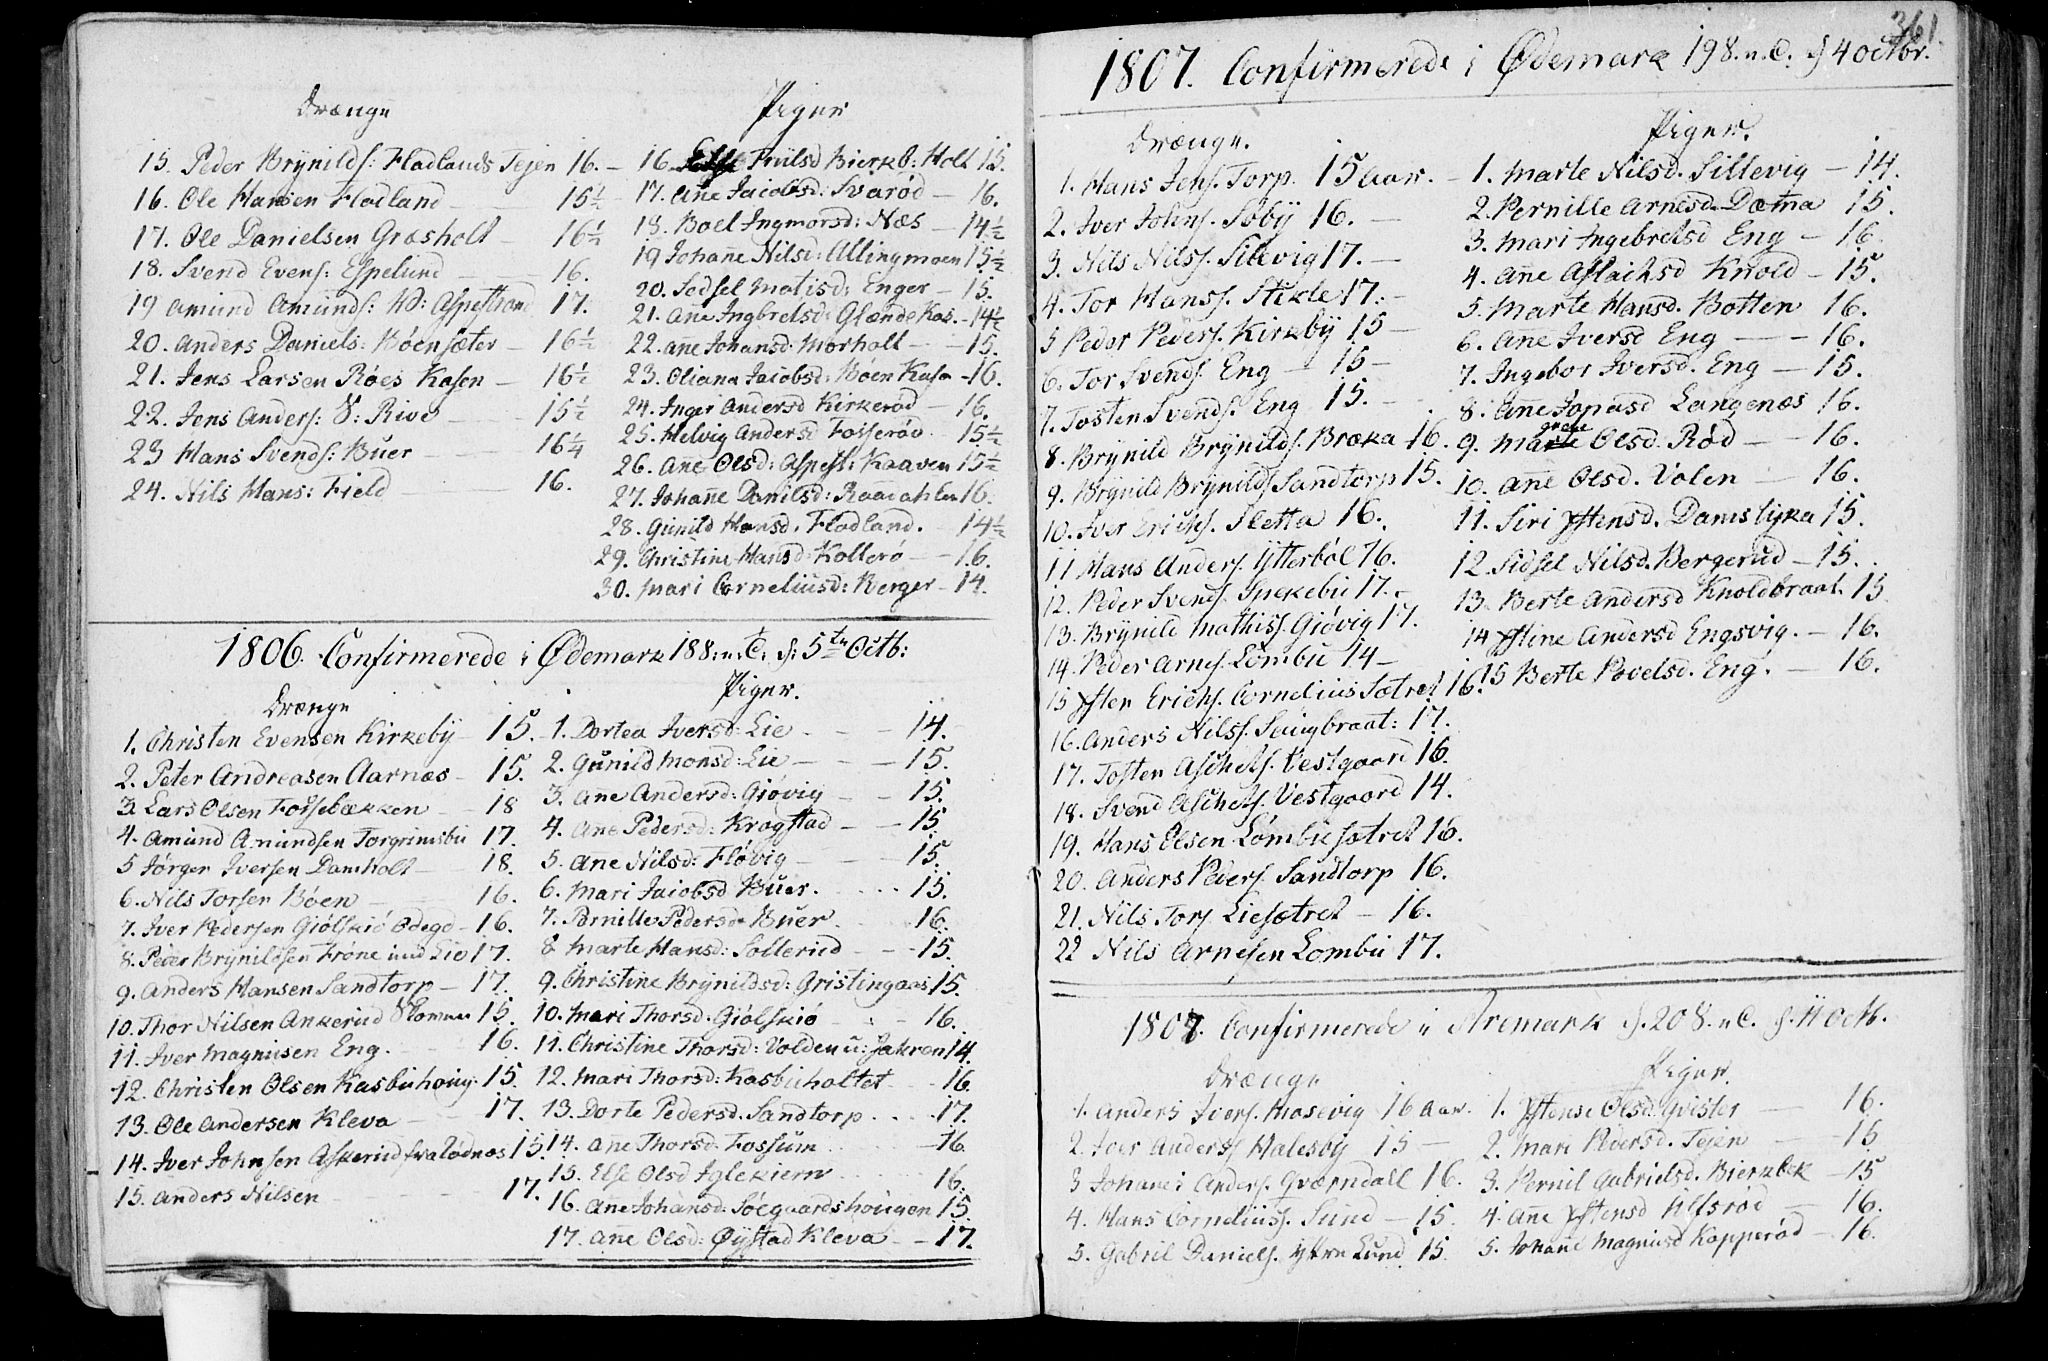 Drænge
15. Peder Brynilds: Fladlands Tejen 16.
16. Ole Hansen Fladland 15½
17. Ole Danielsen Græsholt 16½
18. Svend Evens: Espelund 16.
19 Amund Amunds: N: Aspestrand 17.
20. Anders Daniels: Bøensæter 16½
21. Jens Larsen Røes Kasen 16½
22. Jens Anders: V: Rive 15½
23 Hans Svends: Buer 16¼
24. Nils Hans: Field 16.
Piger
16. Else Bierkb: Holt 15.
17. Anne Jacobsd: Svarød 16.
18. Boel Ingmorsd: Næs 14½
19 Johanne Nilsd: Allingmoen 15½
20. Sedsel Matisd: Enger 15.
21. Ane Ingbretsd: Glænde Kas. 14½
22. Anne Johansd: Morholt 15.
23. Oliana Jacobsd: Bøen Kasa 16.
24. Inger Andersd Kirkerød 16.
25. Helvig Andersd Fosserød 15½
26. Anne Olsd: Aspest: Kaaven 15½
27. Johanne Danilsd: 16.
28. Gunild Hansd. Fladland. 14½
29. Christine Hansd: Kollerø 16.
30. Mari Corneliusd: Berger 14.
1806. Confirmerede i Ødemark 188: n: T: d: 5te Octb:
Drænge
1. Christen Evensen Kirkeby 15.
2. Peter Andreasen Aarnæs 15.
3. Lars Olsen Fossebækken 18
4. Amund Amundsen Torgrimsbu 17.
5 Jørgen Iversen Damholt 18.
6. Nils Torsen Bøen 16.
7. Iver Pedersen Giølskiø Ødegd 16.
8. Peder Brynildsen Krone und Lie 17.
9. Anders Hansen Sandtorp 17.
10. Thor Nilsen Ankerud 15.
11. Iver Magnusen Eng. 16.
12. Christen Olsen Kasbuhoug 15.
13. Ole Andersen Kleva 17.
14. Iver Johnsen Askerud fra Tødnæs 15.
15. Anders Nilsen 17.
Piger.
1. Dortea Iversd: Lie 14.
2. Gunild Monsd: Lie 15.
3. Anne Andersd: Giøvig 15.
4. Ane Pedersd: Kragstad 15
5. Ane Nilsd: Fløvig 15.
6. Mari Jacobsd Buer. 15.
7. Pernille Pedersd: Buer 16.
8 Marte Hansd: Sollerud 15.
9. Christine Brynildsd: Gristingaas 15.
10. Mari Thorsd. Giølskiø 16.
11. Christine Thorsd: Volden u: Jakren 14.
12. Mari Thorsd: Kasbuholtet 16.
13. Dorte Pedersd. Sandtorp 17.
14. Anne Thorsd. Fossum 16.
15. Else Olsd Iglekiern 16.
16. Anne Johansd: Søegaardshougen 15.
17. Anne Olsd: Øystad Kleva 17.
361.
1807. Confirmerede i Ødemark 198. n. T. d 4 octbr.
Drænge.
1. Hans Jens. Torp. 15 aar.
2. Iver Johns. Søby 16.
3. Nils Nilss. Silevig 17.
4. Tor Hanss. Stikle 17.
5 Peder Peders. Kirkeby 15
6. Tor Svends. Eng 15
7. Tosten Svends. Eng 15.
8. Brynild Brynilds. Bræka 16.
9. Brynild Brynilds Sandtorp 15.
10. Iver Erichs. Sletta 16.
11 Hans Anders. Ytterbøl 16.
12. Peder Svends. Spekebu 17.
13. Brynild Mathiss. Giøvig 17.
14. Peder Arnes. Lømbu 14
15 Østen Erichs. Cornelius Sætret 16.
16. Anders Nilss. 17.
17. Tosten Aschels. Vestgaard 16.
18. Svend Aschels. Vestgaard 14.
19. Hans Olsen Lømbusætret 16.
20. Anders Peders. Sandtorp 16.
21. Nils Tors. Liesætret 16.
22 Nils Arnesen Lombu 17.
Piger.
1. Marte Nilsd. Sillevig 14.
2. Pernille Arnesd. Dætna 15.
3. Mari Ingebretsd Eng 16.
4. Ane Aslachsd Knold 15.
5. Marte Hansd. Botten 16.
6. Ane Iversd Eng 16.
7. Ingebor Iversd. Eng 15.
8. Anne Jonasd Langenæs 16.
grete
9. Marte Olsd. Rød 16.
10. Anne Olsd. Volen 16.
11. Siri Østensd. Damstyka 15.
12. Sidsel Nilsd. Bergerud 15.
13. Berte Andersd Knoldbraat. 15
14 Østine Andersd Engsvig. 16.
15 Berte Povelsd. Eng. 16.
1807. Confirmerede i Aremark d. 20 8. n T. d. 11 Octb.
Drænge
1. Anders Ivers. Mosevig 16 aar.
2. Iver Anderss Halesby 15
3 Johanes Anders. Qværndall 16.
4. Hans Corneliuss. Sund 15.
5. Gabril Daniels. Ytre Lund 15.
Piger.
1. Østense Olsd. Qvister 16.
2. Mari Pedersd. Tejen 15
3. Pernil Gabrielsd. Bierkbek 15
4. Ane Østensd Ulfsrød 16.
5. Johane Magnusd Kapperød 16.